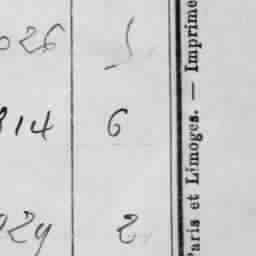 026 5
814 6
929 2
Paris et Limoges. — Imprime